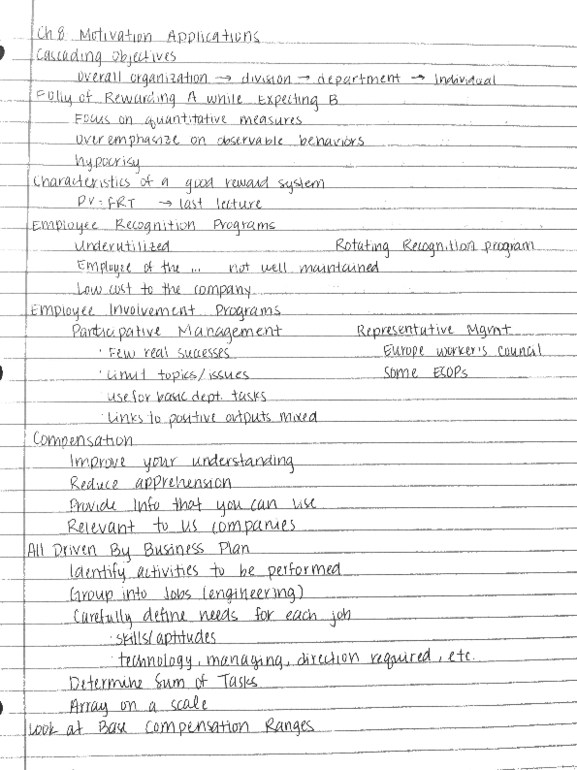 Ch 8 Motivation Applications
Cascading Objectives
overall organization → division → department → Individual
Folly of Rewarding A while Expecting B
Focus on quantitative measures
over emphasize on observable behaviors
hypocrisy
Characteristics of a good reward system
PV=FRT → last lecture
Employee Recognition Programs
Underutilized Rotating Recognition program
Employee of the ... not well maintained
Low cost to the company
Employee Involvement Programs
Participative Management Representative Mgmt
· Few real sucesses Europe worker's council
· Limit topics/issues Some ESOPs
use for basic dept. tasks
· Links to positive outputs mixed
Compensation
Improve your understanding
Reduce apprehension
Provide Info that you can use
Relevant to US companies
All Driven By Business Plan
Identify activities to be performed
Group into Jobs (engineering)
Carefully define needs for each job
· skills/aptitudes
· technology, managing, direction required, etc.
Determine Sum of Tasks
Array on a scale
Look at Base Compensation Ranges